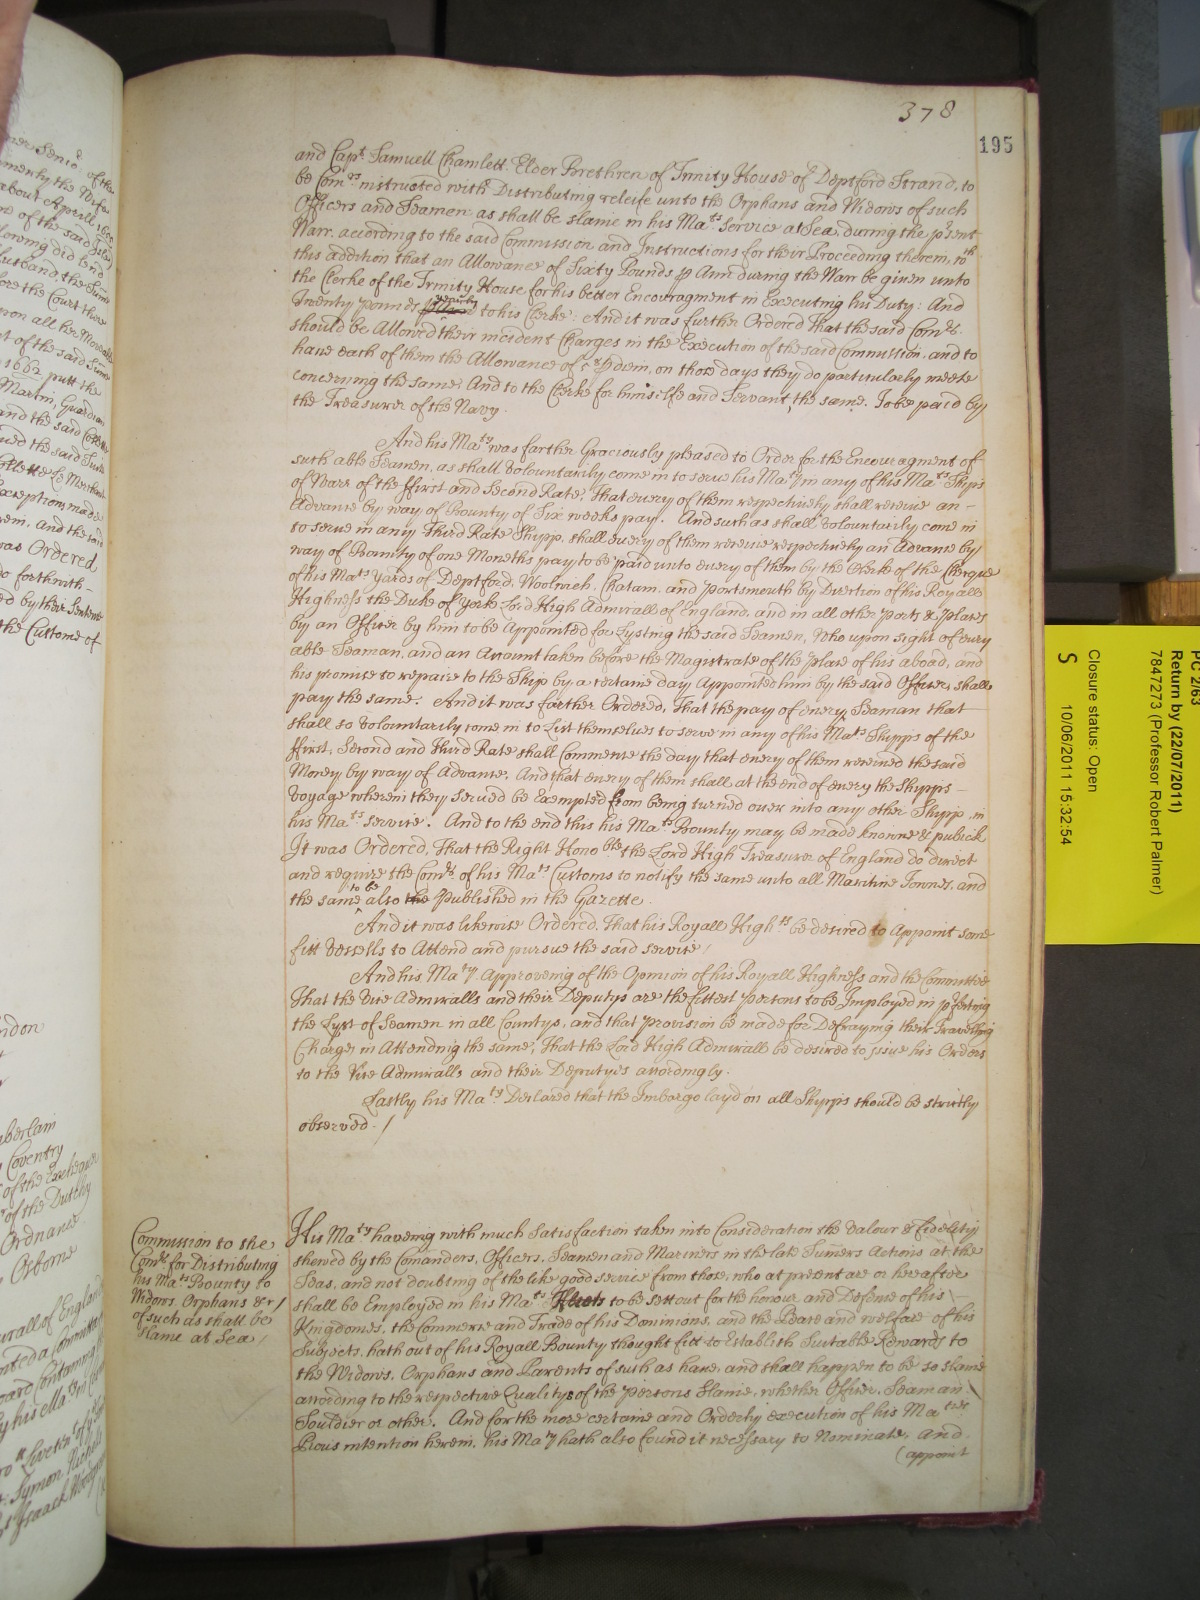 378
195
and Capt. Samuell Chamlett. Elder Brethren of Trinity House of Deptford Strand, to
be Com:rs instructed with Distributing releife unto the Orphans and Widows of such
Officers and Seamen as shall be slaine in his Mats. Service at Sea, during the p'sent
Warr, according to the said Commission and Instructions for their Proceeding therein, wth
this addition that an Allowance of Sixty Pounds p Ann during the Warr be given unto
the Clerke of the Trinity House for his better Encouragment in Executing his Duty: And
Twenty pounds yearly to his Clerke: And it was further Ordered That the said Comrs.
should be Allowed their incident Charges in the Execution of the said Commission, and to
have each of them the Allowance of p diem, on those days they do particularly meete
concerning the same: And to the Clerke for himselfe and Servant, the same. To be paid by
the Treasurer of the Navy.
And his Maty was farther Graciously pleased to Order for the Encouragment of
such able Seamen, as shall Voluntarily come in to serve his Maty in any of his Mats Ships
of Warr of the ffirst and Second Rate, That every of them respectively shall receive an -
Advance by way of Bounty of Six weeks pay. And such as shall Voluntarily come in
to serve in any Third Rate Shipp, shall every of them receive respectively an Advance by
way of Bounty of one Moneths pay to be paid unto every of them by the Clerk of the Cheque
of his Mats Yards of Deptford, Woolwich, Chatam, and Portsmouth by Direction of his Royall
Highness the Duke of Yorke Lord High Admirall of England, and in all other Ports & Places
by an Officer by him to be Appointed for Lysting the said Seamen, Who upon sight of every
able Seaman, and an Account taken before the Magistrate of the place of his aboad, and
his promise to repaire to the Ship by a certaine day Appointed him by the said Officer, shall
pay the same. And it was farther Ordered, That the pay of every Seaman that
shall so Voluntarily come in to List themselves to serve in any of his Mats Shipps of the
ffirst, Second and Third Rate shall Commence the day that every of them received the said
Money by way of Advance, And that every of them shall at the end of every the Shipps -
Voyage wherein they served be Exempted from being turned over into any other Shipp in
his Mats service. And to the end this his Mats Bounty may be made knowne & publick
It was Ordered, That the Right Honoble the Lord High Treasurer of England do direct
and require the Comrs. of his Mats Customs to notify the same unto all Maritine Townes, and
the same also to be Published in the Gazette.
And it was likewise Ordered, That his Royall Hights be desired to Appoint some
fitt Vessells to Attend and pursue the said service /
And his Maty Approveing of the Opinion of his Royall Highness and the Committee
That the Vice Admiralls and their Deputys are the fittest persons to be Imployed in p'fecting
the Lyst of Seamen in all Countys, and that Provision be made for Defraying their Travelling
Charges in Attending the same, That the Lord High Admirall be desired to issue his Orders
to the Vice Admiralls and their Deputyes accordingly.
Lastly his Maty Declared that the Imbargo layd on all Shipps should be strictly
observed. /
Commission to the
Comrs. for Distributing
his Mats Bounty to
Widows, Orphans &c /
of such as shall be
slaine at Sea /
His Maty haveing with much Satisfaction taken into Consideration the Valour & Fidelity
shewed by the Comanders, Officers, Seamen and Mariners in the late Sumers Actions at the
Seas, and not doubting of the like good service from those, who at present are or hereafter
shall be Employed in his Mats ffleets to be sett out for the honour and Defence of his
Kingdomes, the Commerce and Trade of his Dominions, and the Peace and welfare of his
Subjects, hath out of his Royall Bounty thought fitt to Establish Suitable Rewards to
the Widows, Orphans and Parents of such as have, and shall happen to be so slaine
according to the respective Qualitys of the persons Slaine, whether Officer, Seaman
Souldier or other. And for the more certaine and Orderly execution of his Maties
Pious intention herein, his Maty hath also found it necessary to Nominate, and
(appoint
PC 2/63
Return by (22/07/2011)
7847273 (Professor Robert Palmer)
Closure status: Open
S 10/06/2011 15:32:54
of the
about Aprill
of the said
lowing did
Husband the
fore the Court
upon all her
of the said
1662 putt the
Martin, Guardian
and the said
and the said
Exceptions made
and the said
was Ordered
forthwith -
by their
the Custome of
Coventry
of the Exchequer
of the Dutchy
Ordnance
Osborne
of England
Symon
Isaack